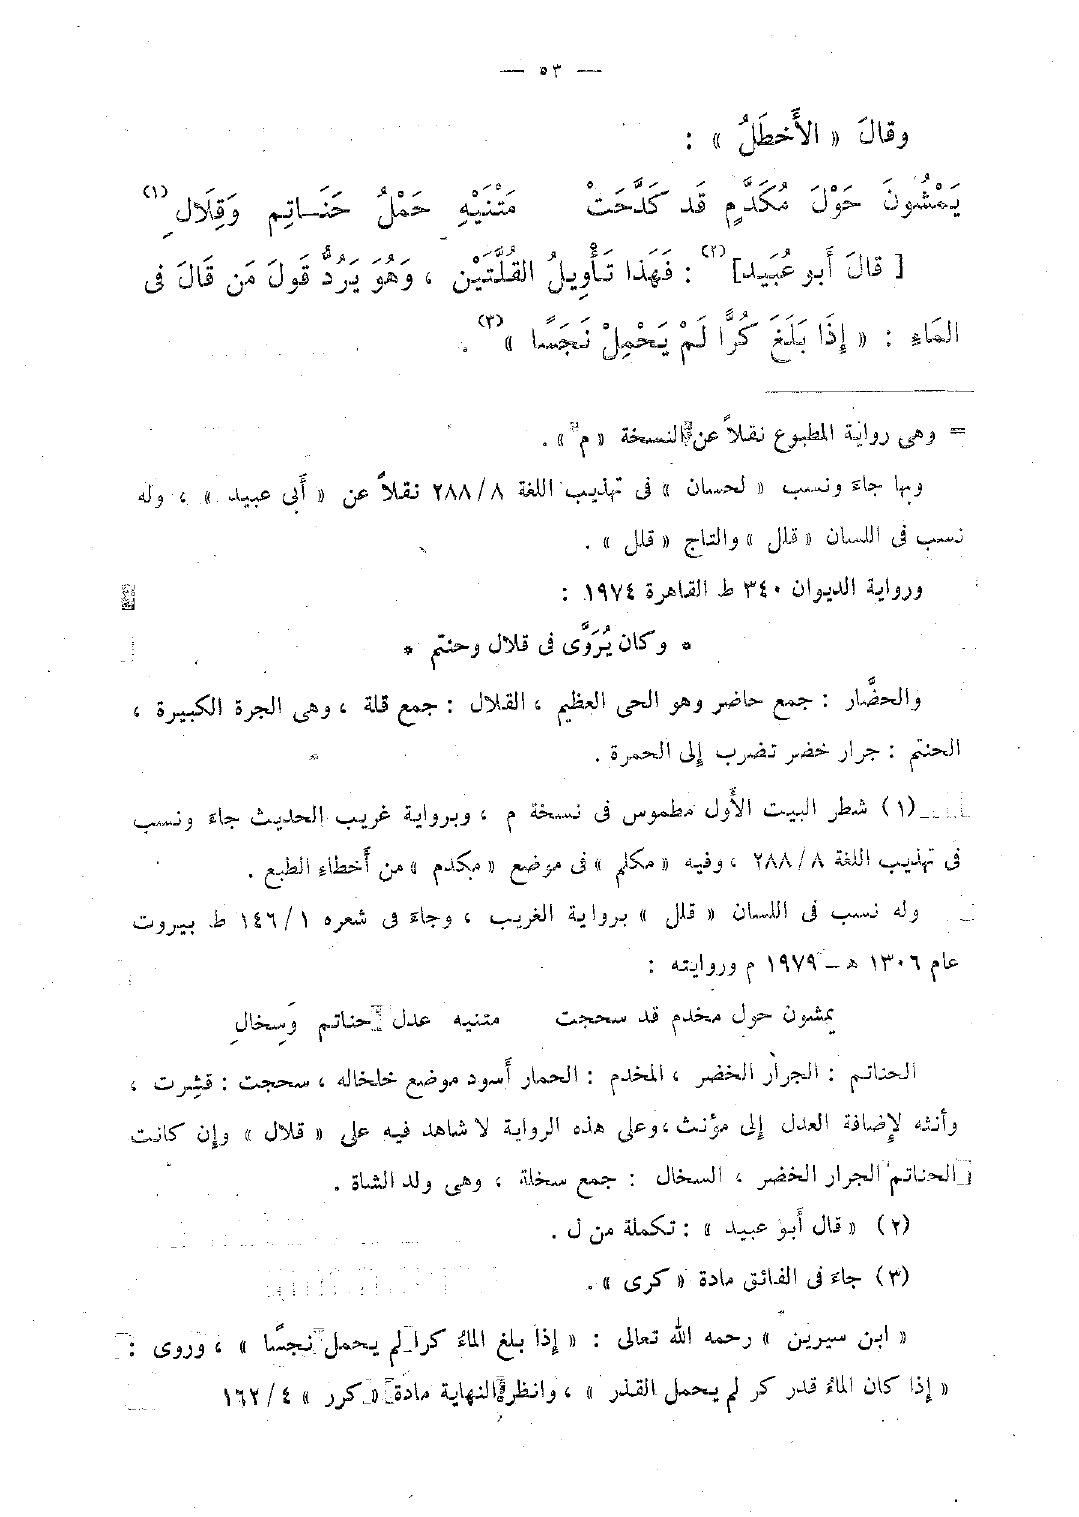 — ٥٣ —
وقالَ « الأَخطَلُ » :
يَمْشُونَ حَوْلَ مُكَدَّمٍ قَد كَدَّحَتْ مَتْنَيْهِ حَمْلُ حَنَاتِمٍ وَقِلَالِ (١)
[ قالَ أَبو عُبَيد] (٢) : فَهَذا تَأْوِيلُ القُلَّتَيْنِ ، وَهُوَ يَرُدُّ قَولَ مَن قَالَ فى
المَاءِ : « إِذَا بَلَغَ كُرًّا لَمْ يَحْمِلْ نَجَسًا » (٣) .
= وهى رواية المطبوع نقلاً عن النسخة « م » .
وبها جاءَ ونسب « لحسان » فى تهذيب اللغة ٢٨٨/٨ نقلاً عن « أَبى عبيد » ، وله
نسب فى اللسان « قلل » والتاج « قلل » .
ورواية الديوان ٣٤٠ ط القاهرة ١٩٧٤ :
* وكان يُرَوَّى فى قلال وحنتم *
والحضَّار : جمع حاضر وهو الحى العظيم ، القلال : جمع قلة ، وهى الجرة الكبيرة ،
الحنتم : جرار خضر تضرب إلى الحمرة .
(١) شطر البيت الأَول مطموس فى نسخة م ، وبرواية غريب الحديث جاءَ ونسب
فى تهذيب اللغة ٢٨٨/٨ ، وفيه « مكلم » فى موضع « مكدم » من أَخطاءِ الطبع .
وله نسب فى اللسان « قلل » برواية الغريب ، وجاءَ فى شعره ١٤٦/١ ط بيروت
عام ١٣٠٦ هـ – ١٩٧٩ م وروايته :
يمشون حول مخدم قد سحجت متنيه عدل حناتم وَسخالِ
الحناتم : الجرار الخضر ، المخدم : الحمار أَسود موضع خلخاله ، سحجت : قشرت ،
وأنثه لإِضافة العدل إلى مؤنث ، وعلى هذه الرواية لا شاهد فيه على « قلال » وإن كانت
الحناتم الجرار الخضر ، السخال : جمع سخلة ، وهى ولد الشاة .
(٢) « قال أَبو عبيد » : تكملة من ل .
(٣) جاءَ فى الفائق مادة « كرى » .
« ابن سيرين » رحمه الله تعالى : « إِذا بلغ الماءُ كرا لم يحمل نجسًا » ، وروى :
« إِذا كان الماءُ قدر كر لم يحمل القذر » ، وانظر النهاية مادة « كرر » ١٦٢/٤